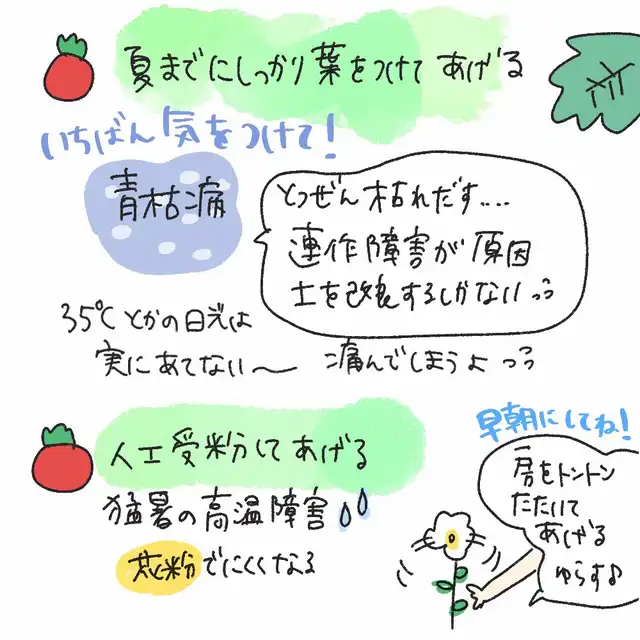 夏までにしっかり葉をつけてあげる
いちばん気をつけて!
青枯病
とつぜん枯れだす....
連作障害が原因
土を改良するしかないっっ
35℃とかの日光は
実にあてない〜 痛んでしまうよっっ
人工受粉してあげる
早朝にしてね!
猛暑の高温障害
花粉でにくくなる
房をトントン
たたいて
あげる
ゆらす♪